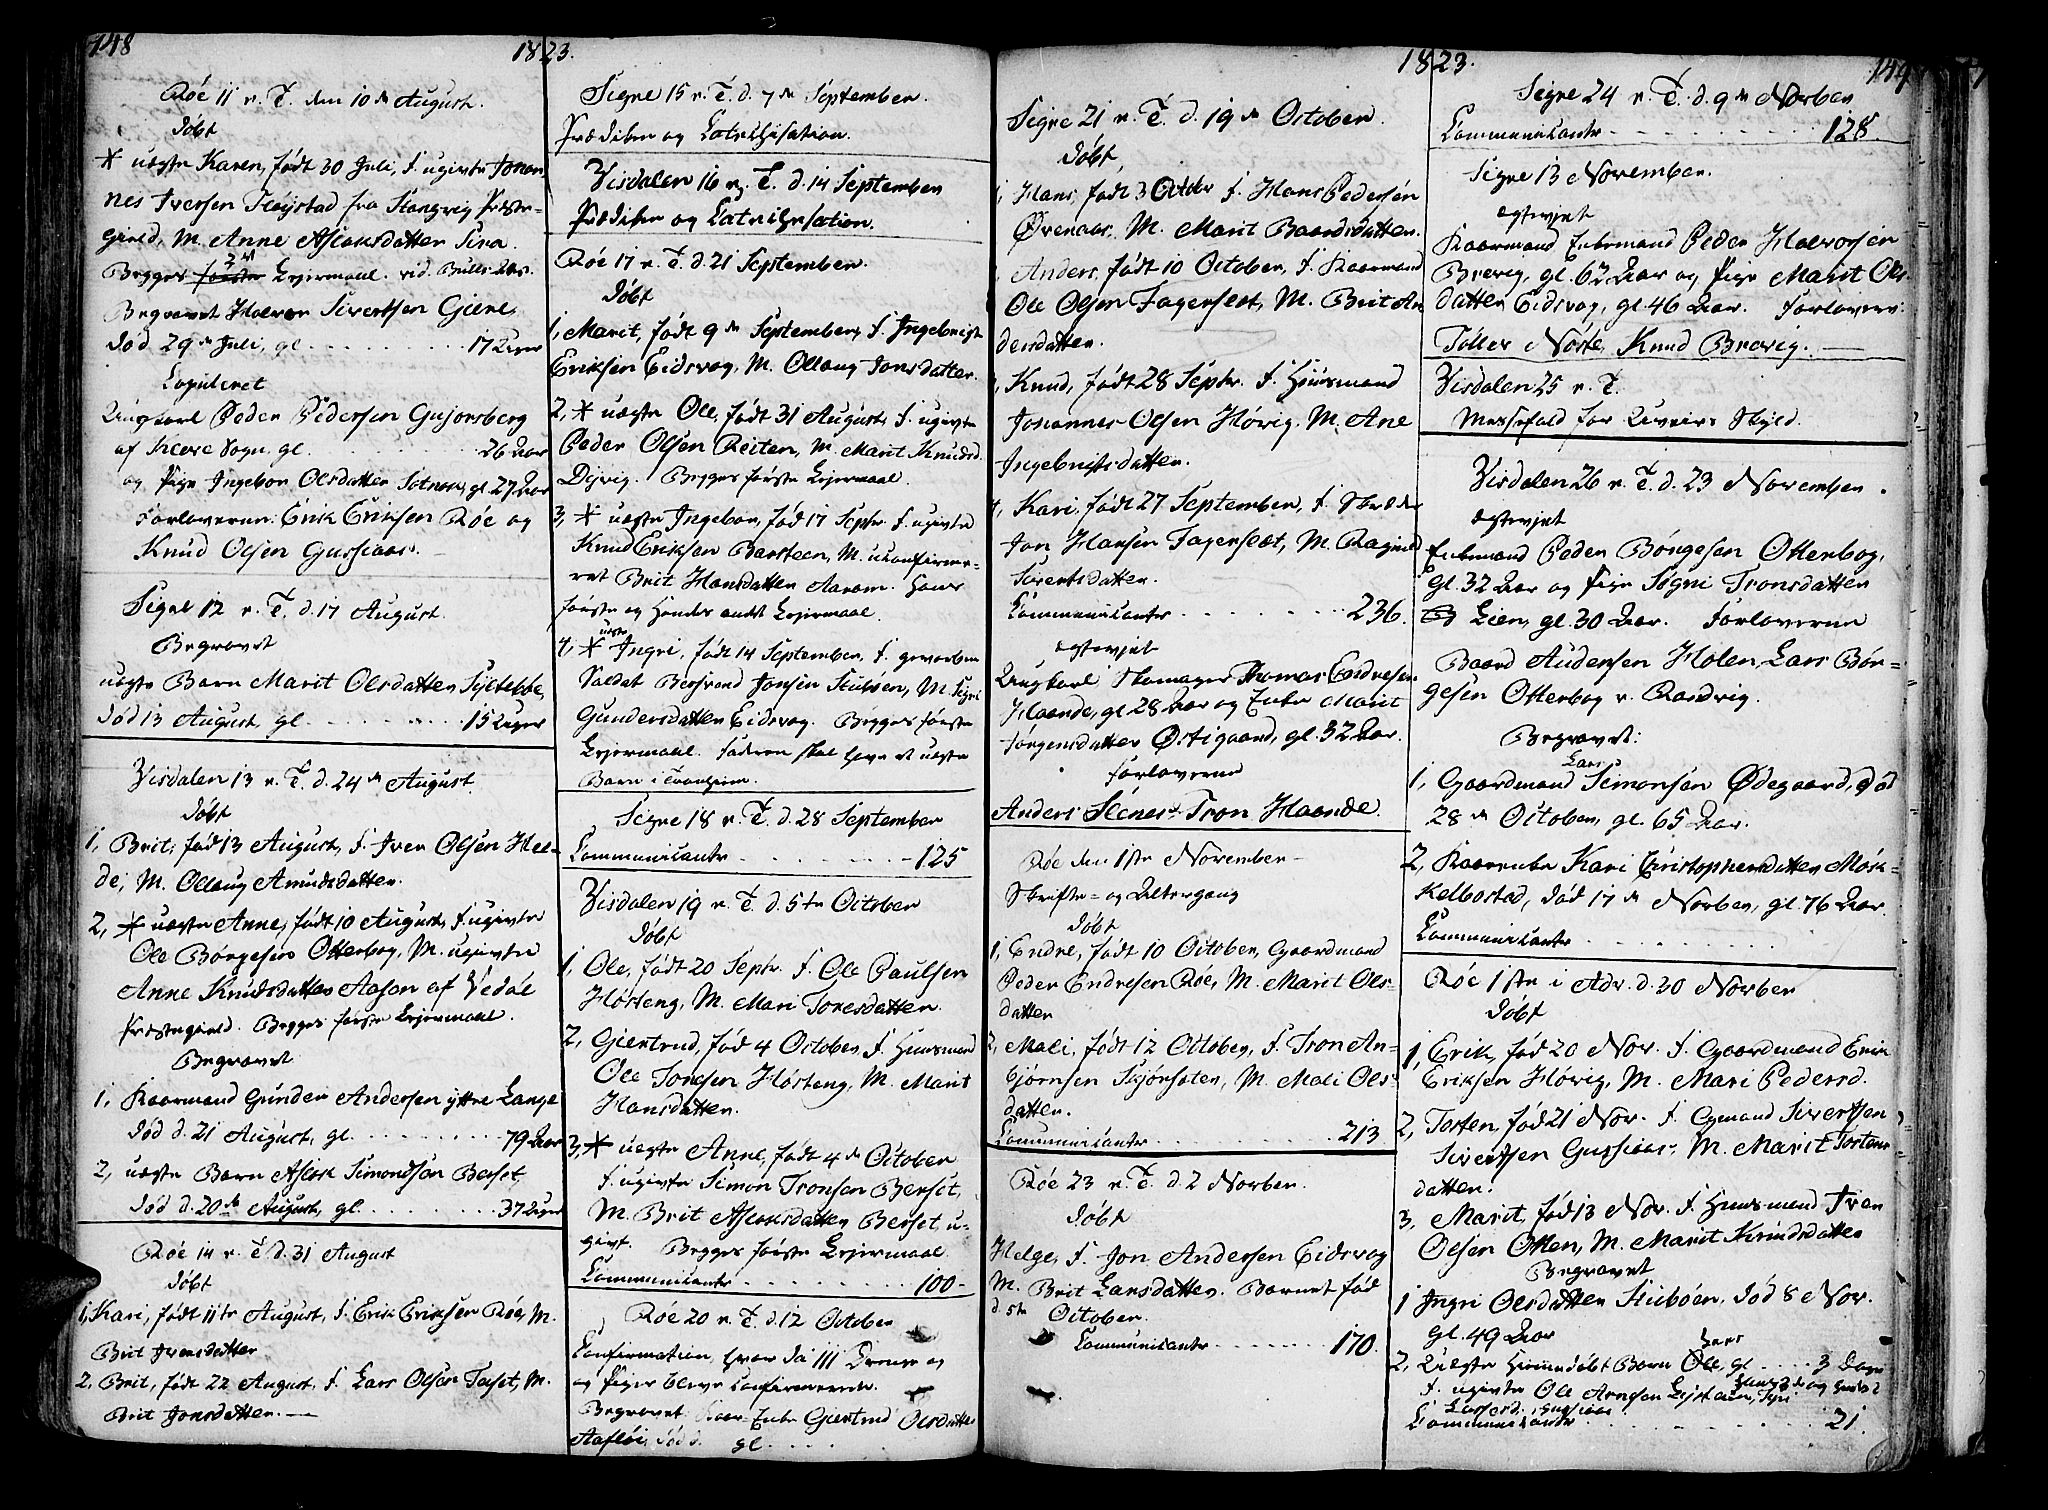 148
1823.
Røe 11 n. T. den 10de August.
Døbt
* uægte Karen, født 30 Juli, F. ugivte Johan-
nes Iversen Høystad fra Stangvig Præste-
gield, M. Anne Aslaksdatter Sira.
Begges 3die Leiermaal.
Begravet Halvor Sivertsen Giere,
død 29de Juli, gl. 17 Uger
Copuleret
Ungkarl Peder Pedersen
af Sogn gl. 26 Aar
og Pige Ingebor Olsdatter gl. 27 Aar
Forloverne: Erik Eriksen Røe og
Knud Olsen Gussiaas.
Signe 12 n. T. d. 17 August.
Begravet
uægte Barn Marit Olsdatter Syltebøe,
død 13 August, gl. 15 Uger
Visdalen 13 n. T. d. 24de August.
Døbt
1, Brit, fød 13 August, F. Iver Olsen Hel-
de, M. Ollaug Amundsdatter.
2, * uægte Anne, født 10 August, F. ugivte
Ole Børgesen Otterbog, M. ugivte
Anne Knudsdatter Aasen af Vedøe
Præstegield. Begges første Leiermaal.
Begravet
1, Kaarmand Gunder Andersen yttre Lange
død d. 21 August, gl. 79 Aar
2, uægte Barn Aslak Simonsen Berset,
død d. 20de August, gl. 37 Uger
Røe 14 n. T. d. 31 August
Døbt
1, Kari, født 11te August, F. Erik Eriksen Røe, M.
Brit Iversdatter
2, Brit, født 22 August, F. Lars Olsen Toset, M.
Brit Jonsdatter.
Signe 15 n. T. d. 7de September.
Prædiken og Catechisation.
Visdalen 16 n. T. d. 14 September
Prædiken og Catechisation.
Røe 17 n. T. d. 21 September.
Døbt
1, Marit, født 9de September, F. Ingebrigt
Eriksen Eidsvog, M. Ollaug Jonsdatter.
2, * uægte Ole, født 31 August, F. ugivte
Peder Olsen Reiten, M. Marit Knudsd.
Begges første Leiermaal.
3, * uægte Ingebor, fød 17 Septbr. F. ugivte
Knud Eriksen Barsteen, M. ukonfirme-
ret Brit Hansdatter Aarøm. Hans
første og Hendes andet Leiermaal.
4, * uægte Ingri, født 14 September, F. gevorben
Soldat Bersvend Jonsen Stubøen, M. Sigri
Gundersdatter Eidsvog. Begges første
Leiermaal. Faderen skal have et uægte
Barn i Tronhiem.
Signe 18 n. T. d. 28 September
Communicanter 125
Visdalen 19 n. T. d. 5te October
Døbt
1, Ole, født 20 Septbr. F. Ole Paulsen
Hørsteng, M. Mari Toresdatter.
2, Giertrud, fød 4 October, F. Huusmand
Ole Toresen Hørsteng, M. Marit
Hansdatter.
3, * uægte Anne, født 4de October
F. ugivte Simon Tronsen Berset,
M. Brit Aslaksdatter Berset, u-
givt. Begges første Leiermaal.
Communicanter 100
Røe 20 n. T. d. 12 October
Confirmation, hvor da 111 Drenge og
og Piger bleve confirmerede.
Begravet: Kaar-Enke Giertrud Olsdatter
død d. gl.
1823.
149
Signe 21 n. T. d. 19de October.
Døbt
1, Hans, født 3 October F. Hans Pedersen
Øvenaas, M. Marit Baardsdatter.
Anders, født 10 October, F. Kaarmand
Ole Olsen Fagerslet, M. Brit An-
dersdatter.
Knud, født 28 Septbr. F. Huusmand
Johannes Olsen Høvig. M. Ane
Ingebrigtsdatter.
4, Kari, født 27 September, F. Skrædder
Jon Hansen Fagerslet, M. Ragnild
Sivertsdatter.
Communicanter 236.
ægteviet
Ungkarl Skomager Thomas Endresen
Haande, gl. 28 Aar og Enke Marit
Jørgensdatter Østigaard, gl. 32 Aar.
Forloverne
Anders Tron Haande.
Røe den 1ste November
Skrifte- og Altergang
Døbt
1, Endre, født 10 October, Gaardmand
Peder Endresen Røe, M. Marit Ols-
datter
2, Mali, født 12 October, F. Tron An-
bjørnsen Skjørsæter, M. Mali Ols-
datter.
Communicanter 213
Røe 23 n. T. d. 2 Novben.
Døbt
Helge, F. Jon Andersen Eidsvog
M. Brit Larsdatter. Barnet fød
d. 5te October.
Communicanter 170.
Signe 24 n. T. d. 9de Novben
Communicanter 128.
Signe 13 November.
ægteviet
Kaarmand Enkemand Peder Halvorsen
Brevig, gl. 62 Aar og Pige Marit Ols-
datter Eidsvog, gl. 46 Aar. Forlovere:
Toller Nøste, Knud Brevig.
Visdalen 25 n. T.
Messefald for Uveirs Skyld.
Visdalen 26 n. T. d. 23 November.
ægteviet
Enkemand Peder Børgesen Otterbog,
gl. 32 Aar og Pige Signi Tronsdatter
Lien, gl. 30 Aar. Forloverne
Baard Andersen Holen, Lars Bør-
gesen Otterbog v. Randvig.
Begravet:
1, Gaardmand Lars Simonsen Ødegaard, død
28de October, gl. 65 Aar.
2, Kaarenke Kari Christophersdatter Møk-
kelbostad, død 17de Novben, gl. 76 Aar.
Communicanter
Røe 1ste i Adv. d. 30 Novben
Døbt
1, Erik, fød 20 Nov. F. Gaardmand Erik
Eriksen Høvig, M. Mari Pedersd.
2, Torsten, fød 21 Nov. F. Gmand Sivert
Sivertsen Gussiaas, M. Marit Torstens-
datter.
3, Marit, fød 13 Nov. F. Huusmand Iver
Olsen Otten, M. Marit Knudsdatter
Begravet
1 Ingri Olsdatter Stubøen, død 8 Nov.
gl. 49 Aar
2, Uægte hiemmedøbt Barn Ole, gl. 3 Dage
F. ugivte Ole Arnesen
Larsd. Gussiaas.
Communicanter 21.